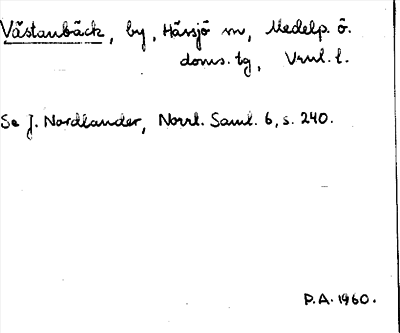 Västanbäck, by, Hässjö sn, Medelp. ö.
doms. tg, Vrnl. l.
Se J. Nordlander, Norrl. Saml. 6, s. 240.
P.A. 1960.